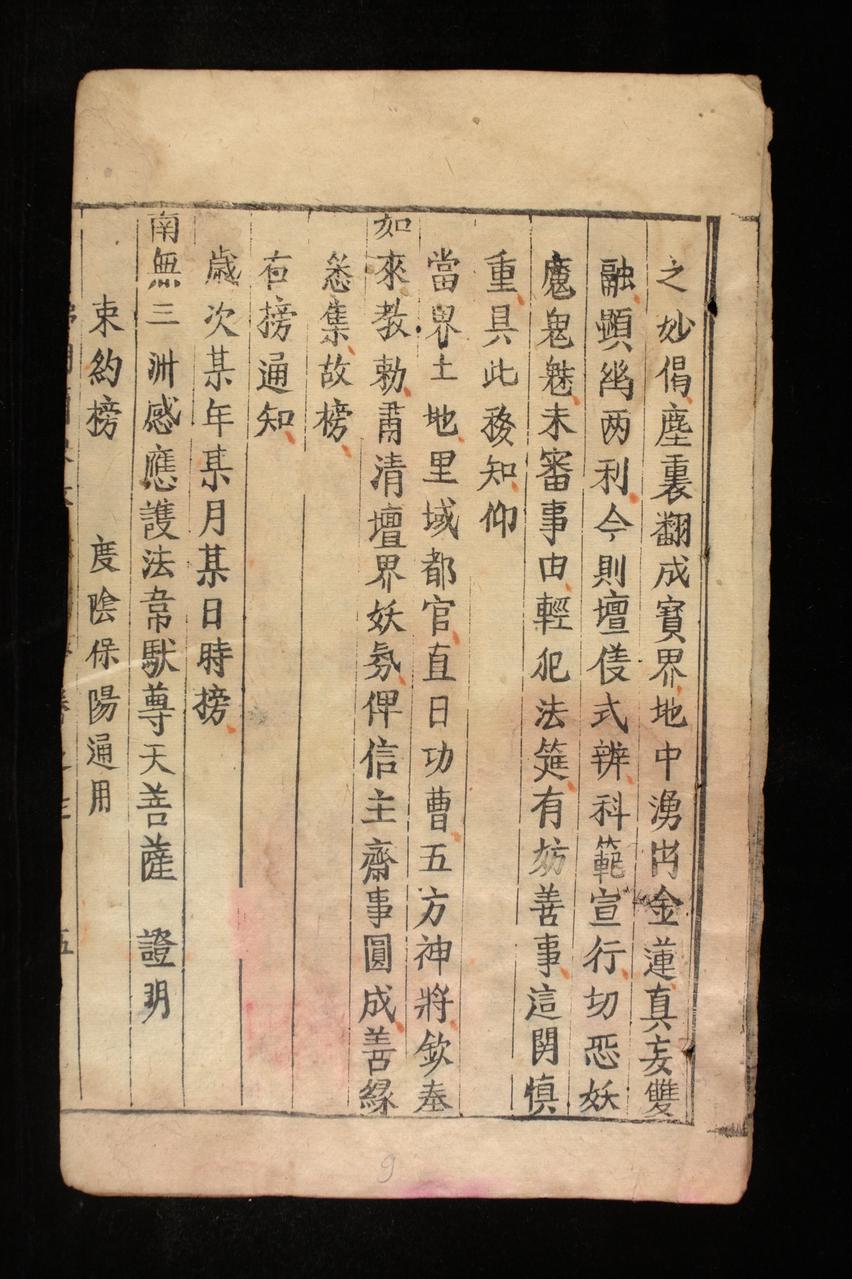 之妙偈塵裏翻成寶界地中湧出金蓮真妄雙
融顯幽两利今則壇俻式辨科範宣行切恐妖
魔鬼魅未審事由輕犯法筵有妨善事這関慎
重具此務知仰
當界土地里域都官直日功曹五方神將欽奉
如來教勅肅清壇界妖氛俾信主齋事圓成善緣
悉集故榜
右榜通知
歲次某年某月某日時榜
南無三洲感應護法韋馱尊天菩薩 證明
束約榜 度陰保陽通用
五
9